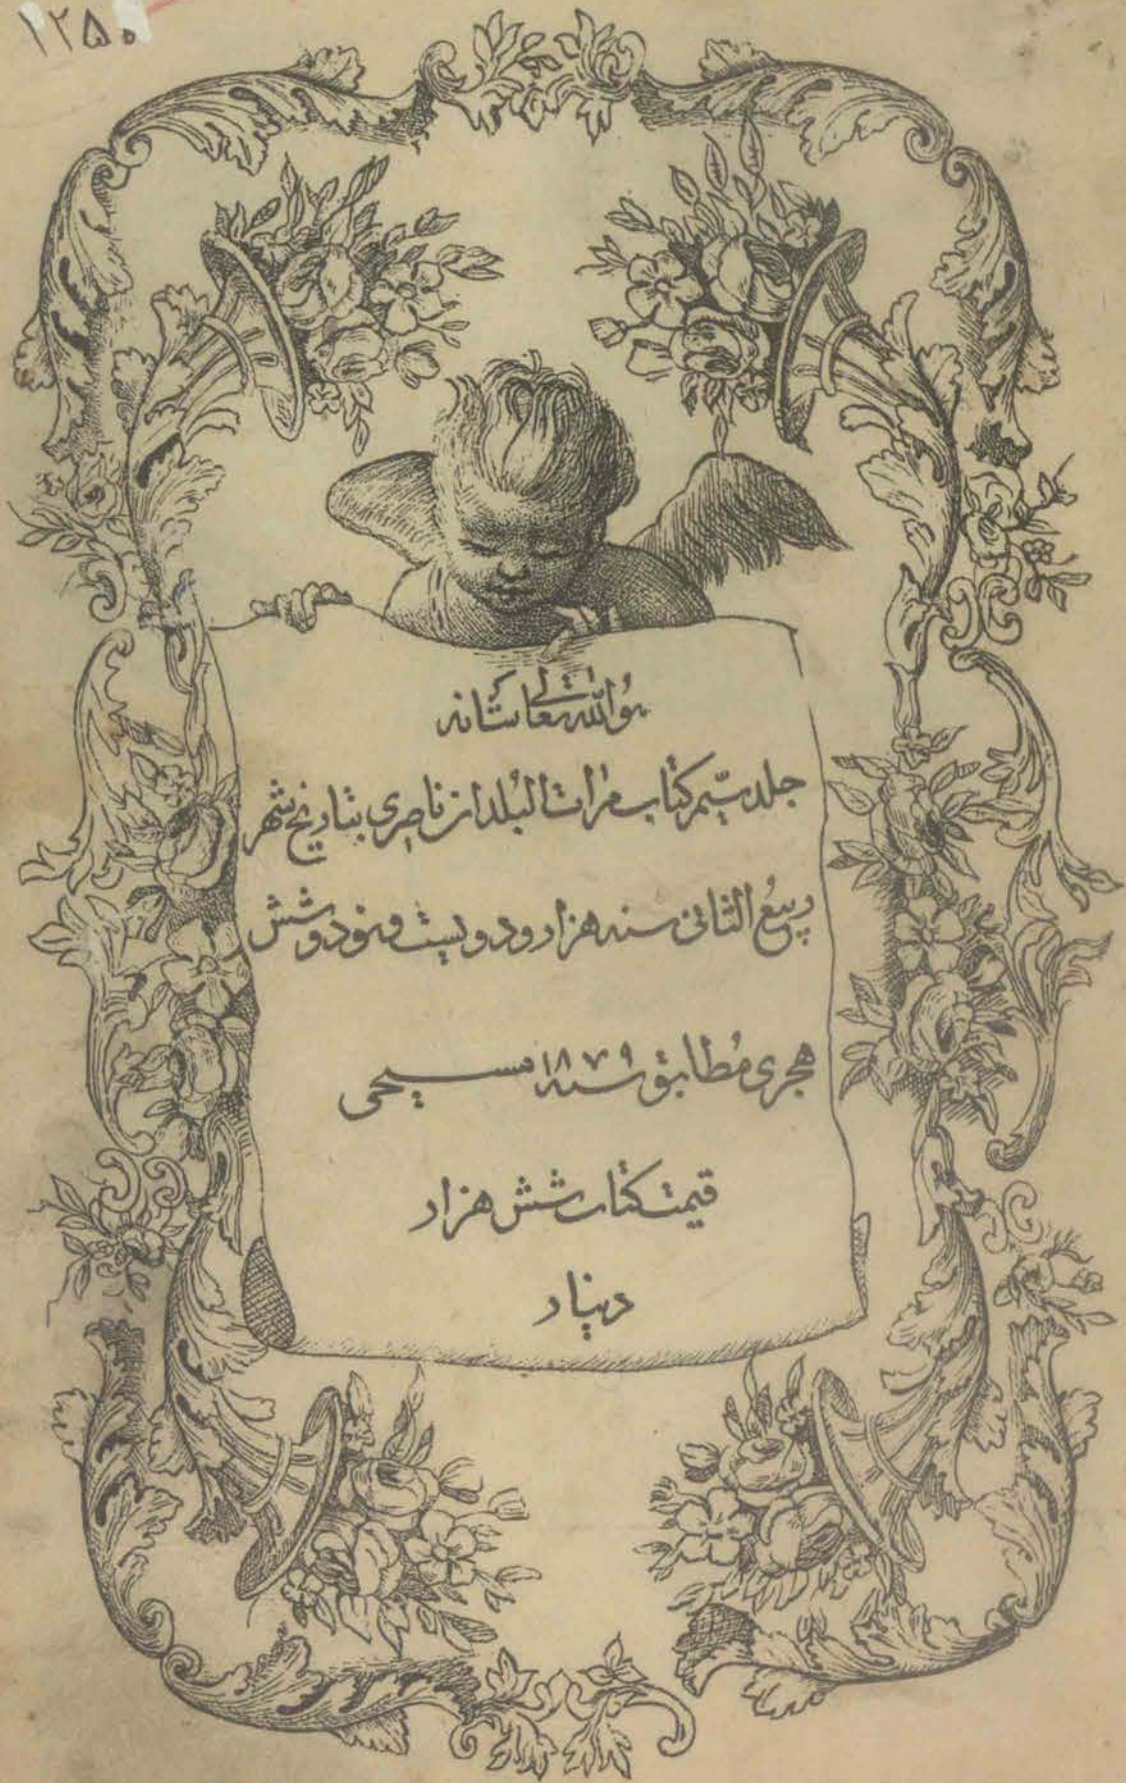 ١٢۵٠
هو الله تعالی شانه
جلد سیّم کتاب مرات البلدان ناصری بتاریخ شهر
ربیع الثانی سنه هزار و دویست و نود و شش
هجری مطابق سنه ۱۸۷۹ مسیحی
قیمت کتاب شش هزار
دینار